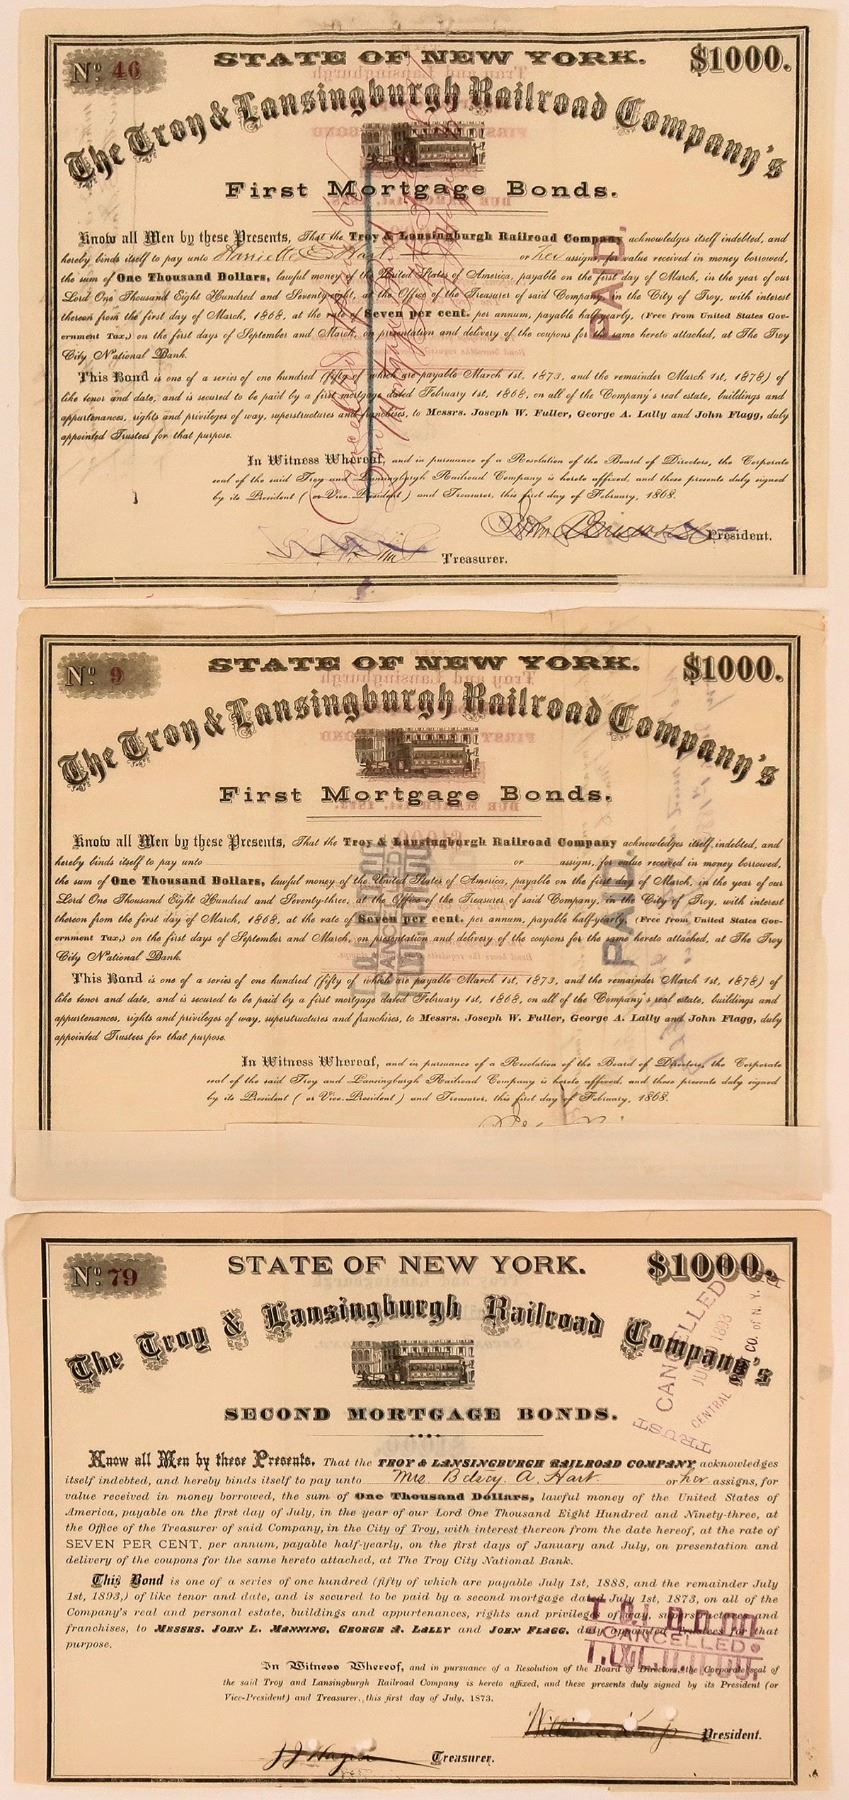 Nº 46
STATE OF NEW YORK.
$1000.
The Troy & Lansingburgh Railroad Company's
First Mortgage Bonds.
Know all Men by these Presents, That the Troy & Lansingburgh Railroad Company acknowledges itself indebted, and
hereby binds itself to pay unto Harriette E. Hart or her assigns, for value received in money borrowed,
the sum of One Thousand Dollars, lawful money of the United States of America, payable on the first day of March, in the year of our
Lord One Thousand Eight Hundred and Seventy-eight, at the Office of the Treasurer of said Company, in the City of Troy, with interest
thereon from the first day of March, 1868, at the rate of Seven per cent. per annum, payable half-yearly, (Free from United States Gov-
ernment Tax,) on the first days of September and March, on presentation and delivery of the coupons for the same hereto attached, at The Troy
City National Bank.
This Bond is one of a series of one hundred (fifty of which are payable March 1st, 1873, and the remainder March 1st, 1878) of
like tenor and date, and is secured to be paid by a first mortgage dated February 1st, 1868, on all of the Company's real estate, buildings and
appurtenances, rights and privileges of way, superstructures and franchises, to Messrs. Joseph W. Fuller, George A. Lally and John Flagg, duly
appointed Trustees for that purpose.
In Witness Whereof, and in pursuance of a Resolution of the Board of Directors, the Corporate
seal of the said Troy and Lansingburgh Railroad Company is hereto affixed, and these presents duly signed
by its President (or Vice-President) and Treasurer, this first day of February, 1868.
President.
Treasurer.
PAID.
Cancelled
Nº 9
STATE OF NEW YORK.
$1000.
The Troy & Lansingburgh Railroad Company's
First Mortgage Bonds.
Know all Men by these Presents, That the Troy & Lansingburgh Railroad Company acknowledges itself indebted, and
hereby binds itself to pay unto or assigns, for value received in money borrowed,
the sum of One Thousand Dollars, lawful money of the United States of America, payable on the first day of March, in the year of our
Lord One Thousand Eight Hundred and Seventy-three, at the Office of the Treasurer of said Company, in the City of Troy, with interest
thereon from the first day of March, 1868, at the rate of Seven per cent. per annum, payable half-yearly, (Free from United States Gov-
ernment Tax,) on the first days of September and March, on presentation and delivery of the coupons for the same hereto attached, at The Troy
City National Bank.
This Bond is one of a series of one hundred (fifty of which are payable March 1st, 1873, and the remainder March 1st, 1878) of
like tenor and date, and is secured to be paid by a first mortgage dated February 1st, 1868, on all of the Company's real estate, buildings and
appurtenances, rights and privileges of way, superstructures and franchises, to Messrs. Joseph W. Fuller, George A. Lally and John Flagg, duly
appointed Trustees for that purpose.
In Witness Whereof, and in pursuance of a Resolution of the Board of Directors, the Corporate
seal of the said Troy and Lansingburgh Railroad Company is hereto affixed, and these presents duly signed
by its President (or Vice-President) and Treasurer, this first day of February, 1868.
PAID.
Nº 79
STATE OF NEW YORK.
$1000.
The Troy & Lansingburgh Railroad Company's
SECOND MORTGAGE BONDS.
Know all Men by these Presents. That the TROY & LANSINGBURGH RAILROAD COMPANY, acknowledges
itself indebted, and hereby binds itself to pay unto Mrs. Betsey A. Hart or her assigns, for
value received in money borrowed, the sum of One Thousand Dollars, lawful money of the United States of
America, payable on the first day of July, in the year of our Lord One Thousand Eight Hundred and Ninety-three, at
the Office of the Treasurer of said Company, in the City of Troy, with interest thereon from the date hereof, at the rate of
SEVEN PER CENT. per annum, payable half-yearly, on the first days of January and July, on presentation and
delivery of the coupons for the same hereto attached, at The Troy City National Bank.
This Bond is one of a series of one hundred (fifty of which are payable July 1st, 1888, and the remainder July
1st, 1893,) of like tenor and date, and is secured to be paid by a second mortgage dated July 1st, 1873, on all of the
Company's real and personal estate, buildings and appurtenances, rights and privileges of way, superstructures and
franchises, to MESSRS. JOHN L. MANNING, GEORGE A. LALLY and JOHN FLAGG, duly appointed Trustees for that
purpose.
In Witness Whereof, and in pursuance of a Resolution of the Board of Directors, the Corporate seal of
the said Troy and Lansingburgh Railroad Company is hereto affixed, and these presents duly signed by its President (or
Vice-President) and Treasurer, this first day of July, 1873.
President.
Treasurer.
CANCELLED
1893
CENTRAL TRUST CO. of N.Y.
CANCELLED